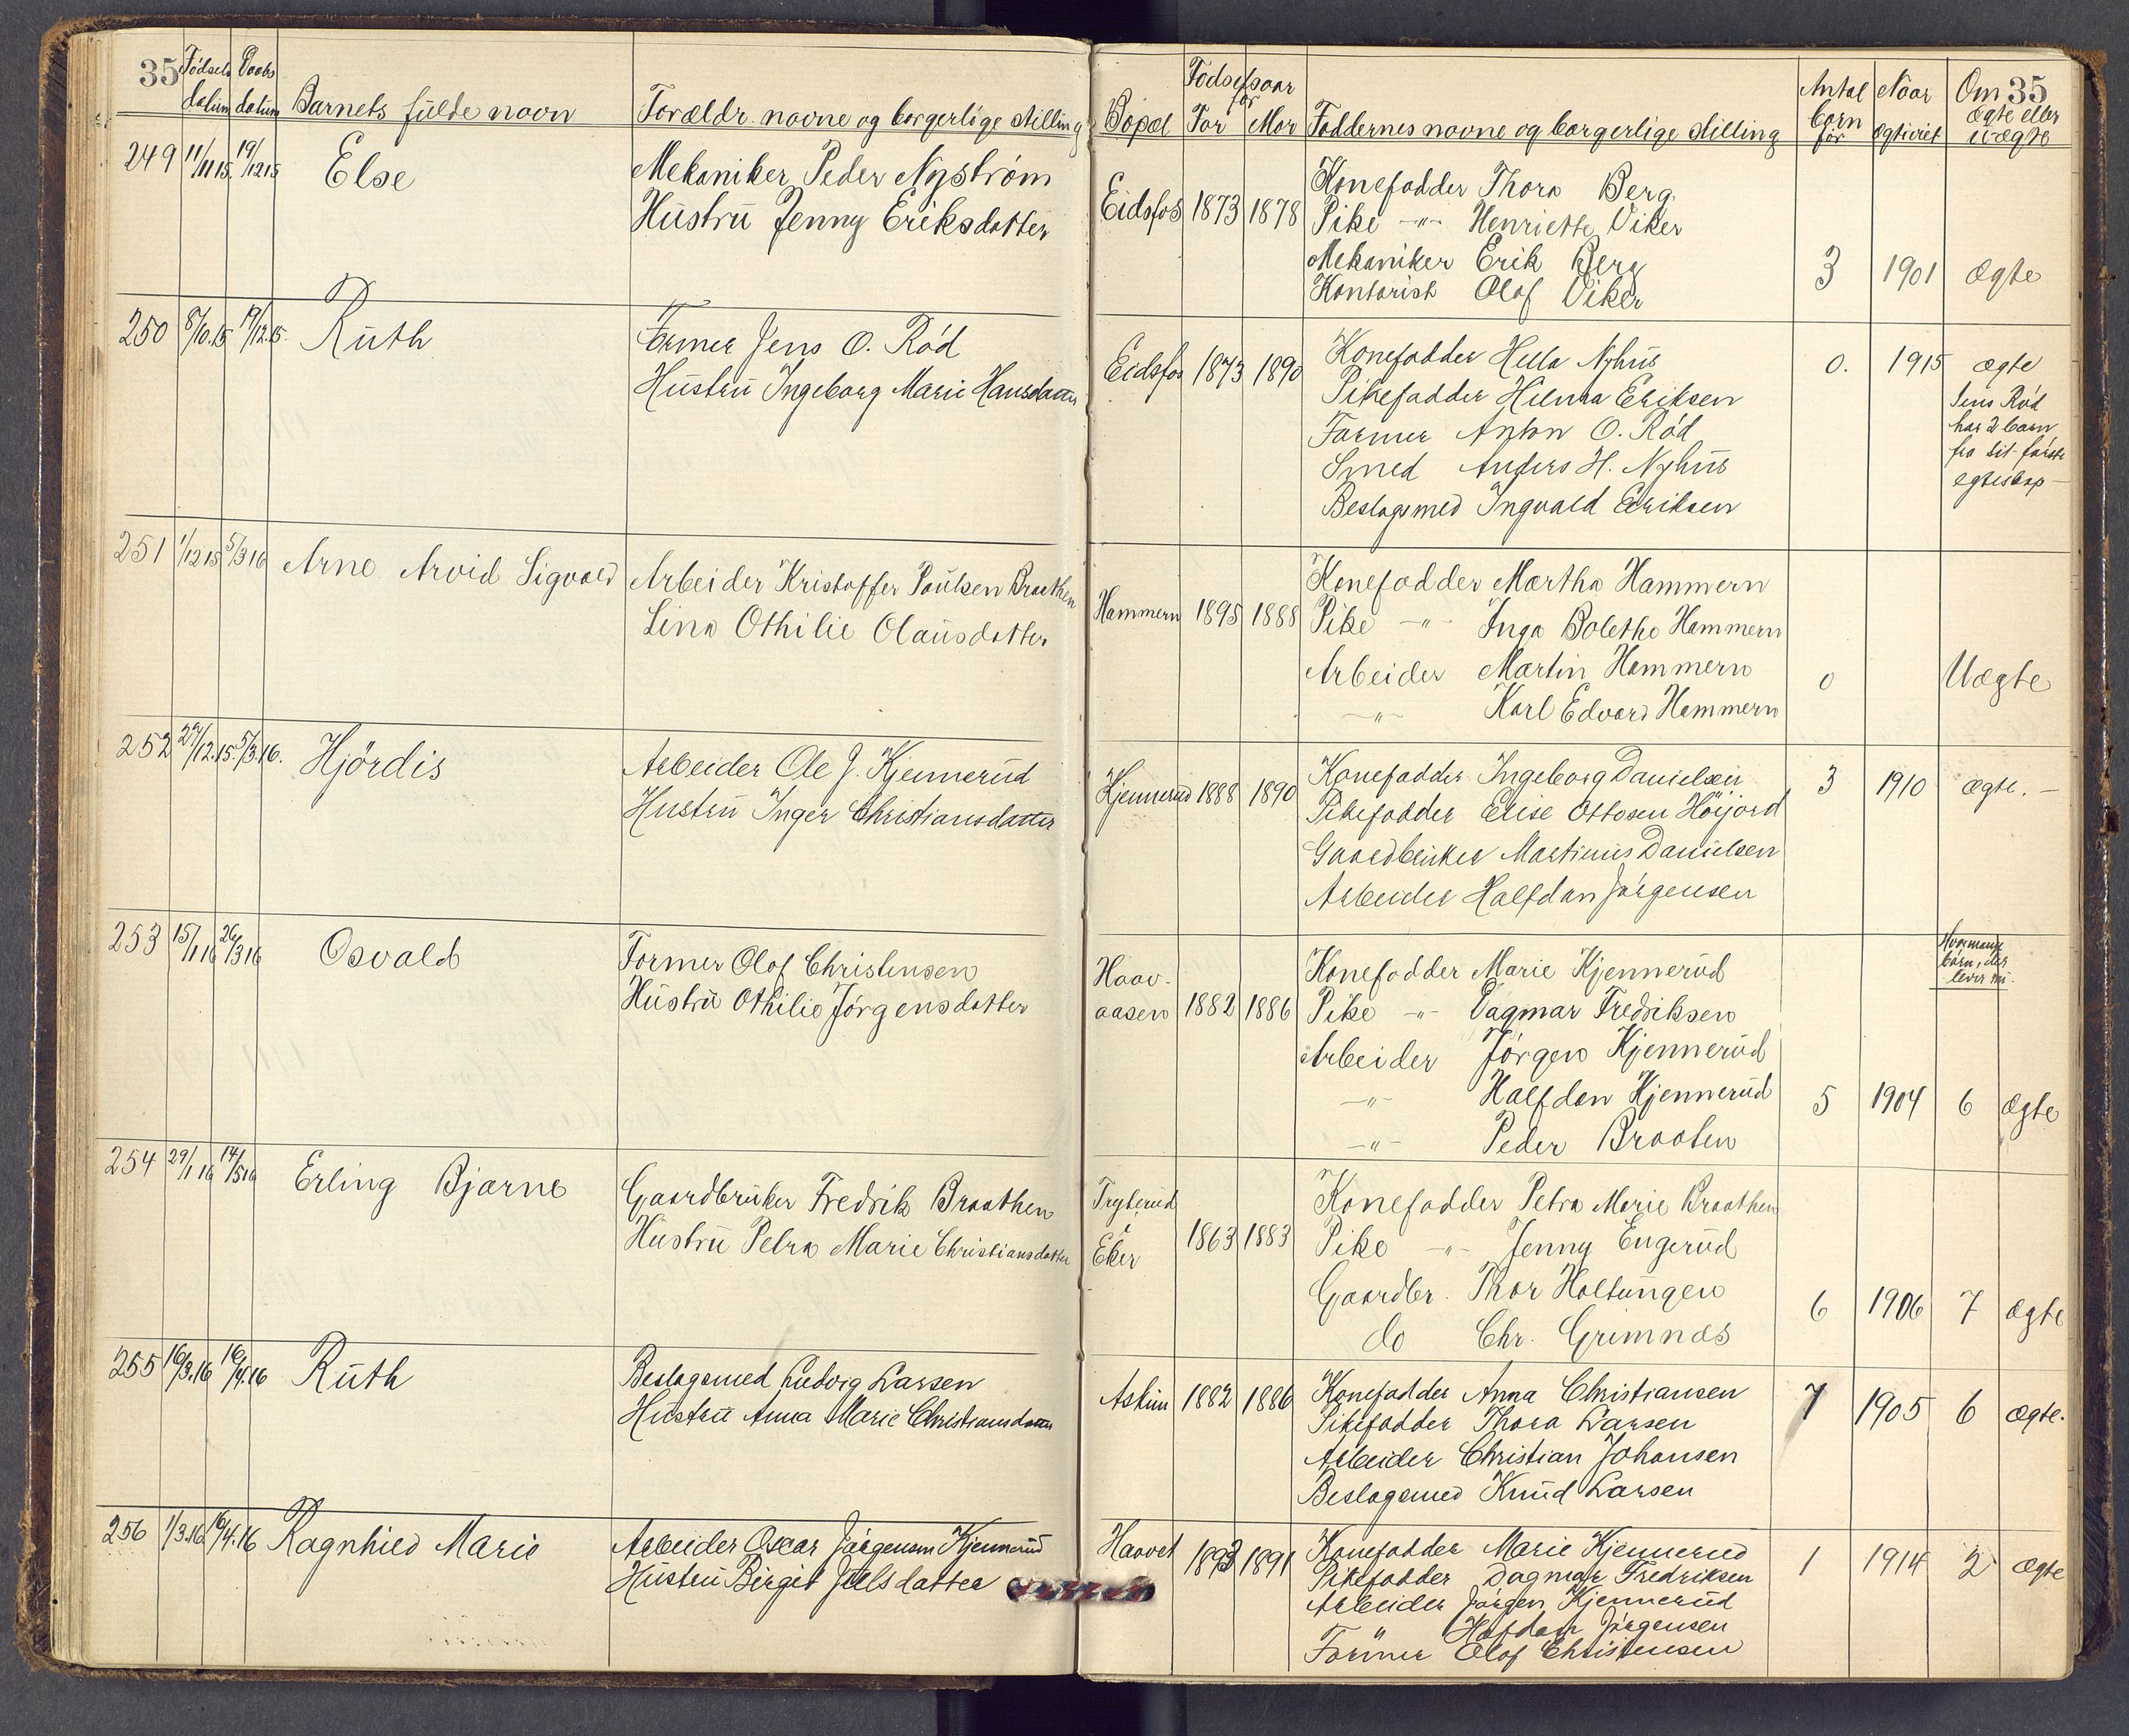 35 Fødsels Daabs
datum datum Barnets fulde navn Forældr. navne og borgerlige stilling
249 11/11 15. 19/12 15 Else Mekaniker Peder Nyström
Hustru Jenny Eriksdatter
250 8/10.15 19/12.15. Ruth Former Jens O. Rød
Hustru Ingeborg Marie Hansdatter
251 1/12 15 5/3 16 Arne Arvid Sigvald Arbeider Kristoffer Paulsen Braathen
Lina Othilie Olausdatter
252 27/12.15. 5/3.16. Hjördis Arbeider Ole J. Kjennerud
Hustru Inger Christiansdatter
253 15/1 16 26/3 16 Osvald Former Olaf Christensen
Hustru Othilie Jörgensdatter
254 29/1 16 14/5 16 Erling Bjarne Gaardbruker Fredrik Braathen
Hustru Petra Marie Christiansdatter
255 16/3.16 16/4.16 Ruth Beslagsmed Ludvig Larsen
Hustru Anna Marie Christiansdatter
256 1/3.16 16/4.16 Ragnhild Marie Arbeider Oscar Jörgensen Kjennerud
Hustru Birgit Julsdatter
Fødselsaar Antal Naar Om 35
for barn ægte eller
Bopæl Far Mor Faddernes navne og borgerlige stilling før ægtiviet uægte
Konefadder Thora Berg.
Eidsfos 1873 1878 Pike -"- Henriette Viker
Mekaniker Erik Berg 3 1901 ægte
Kontorist Olaf Viker
Konefadder Hella Nyhus 0. 1915 ægte
Eidsfos 1873 1890 Pikefadder Hilma Eriksen Jens Rød
Former Anton O. Rød har 2 barn
Smed Anders H. Nyhus fra sit første
Beslagsmed Ingvald Eriksen egteskap
Konefadder Martha Hammern
Hammern 1895 1888 Pike -"- Inga Bolethe Hammern
Arbeider Martin Hammern 0 Uægte
-"- Karl Edvard Hammern
Konefadder Ingeborg Danielsen
Kjennerud 1888 1890 Pikefadder Elise Ottosen Höijord 3 1910 ægte. -
Gaardbruker Martinius Danielsen
Arbeider Halfdan Jörgensen
Hvormange
barn, der
lever nu.
Haav- Konefadder Marie Kjennerud
aasen 1882 1886 Pike -"- Dagmar Fredriksen
Arbeider Jörgen Kjennerud
-"- Halfdan Kjennerud 5 1904 6 ægte
-"- Peder Braaten
Tryterud Konefadder Petra Marie Braathen
Eker 1863 1883 Pike -"- Jenny Engerud
Gaardbr. Thor Holtungen 6 1906 7 ægte
do Chr. Grimnæs
Askim 1882 1886 Konefadder Anna Christiansen 7 1905 6 ægte.
Pikefadder Thora Larsen
Arbeider Christian Johansen
Beslagsmed Knud Larsen
Haavet 1893 1891 Konefadder Marie Kjennerud 1 1914 2 ægte
Pikefadder Dagmar Fredriksen
Arbeider Jörgen Kjennerud
" Hafdan Jörgensen
Former Olaf Christensen